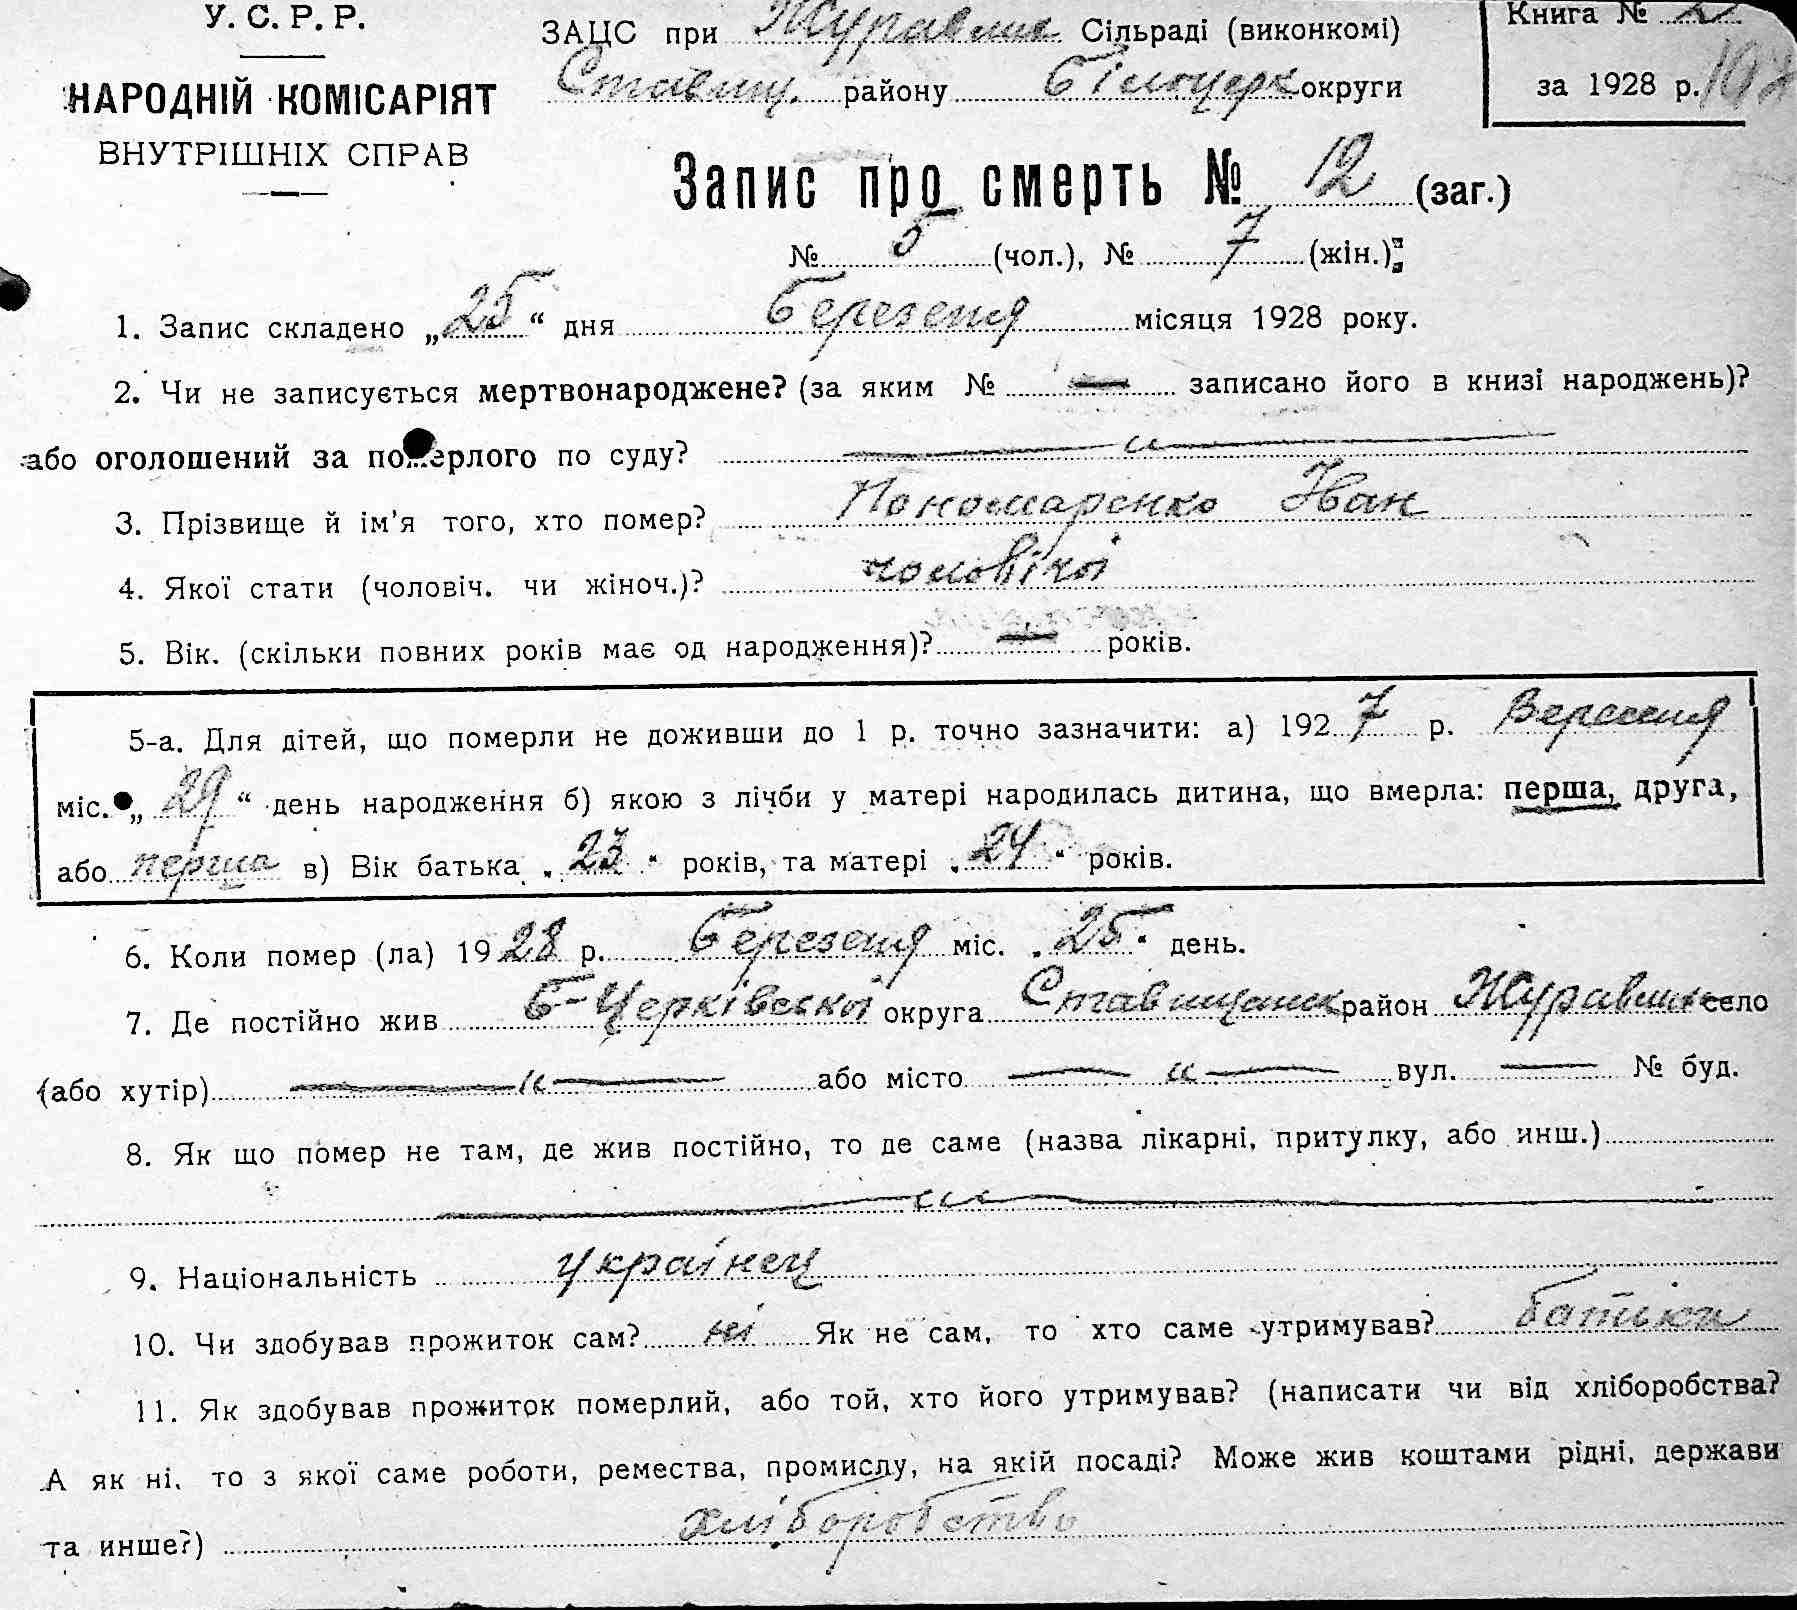 У. С. Р. Р.
НАРОДНІЙ КОМІСАРІЯТ
ВНУТРІШНІХ СПРАВ
ЗАЦС при Журавлис. Сільраді (виконкомі)
Ставищ. району Білоцерк округи
Книга № 2
за 1928 р.
Запис про смерть № 12 (заг.)
№ 5 (чол.), № 7 (жін.)
1. Запис складено „25“ дня Березеня місяця 1928 року.
2. Чи не записується мертвонароджене? (за яким № — записано його в книзі народжень)?
або оголошений за померлого по суду? — „ —
3. Прізвище й ім'я того, хто помер? Пономаренко Іван
4. Якої стати (чоловіч. чи жіноч.)? чоловічої
5. Вік. (скільки повних років має од народження)? — років.
5-а. Для дітей, що померли не доживши до 1 р. точно зазначити: а) 1927 р. Вересеня
міс. „29“ день народження б) якою з лічби у матері народилась дитина, що вмерла: перша, друга,
або перша в) Вік батька „23“ років, та матері „24“ років.
6. Коли помер (ла) 1928 р. Березеня міс. „25“ день.
7. Де постійно жив Б-Церківської округа Ставищанск район село
(або хутір) — „ — або місто — „ — вул. — № буд.
8. Як що помер не там, де жив постійно, то де саме (назва лікарні, притулку, або инш.)
— „ —
9. Національність українец
10. Чи здобував прожиток сам? ні Як не сам, то хто саме утримував? батьки
11. Як здобував прожиток померлий, або той, хто його утримував? (написати чи від хліборобства?
А як ні, то з якої саме роботи, ремества, промислу, на якій посаді? Може жив коштами рідні, держави
та инше?) хліборобство